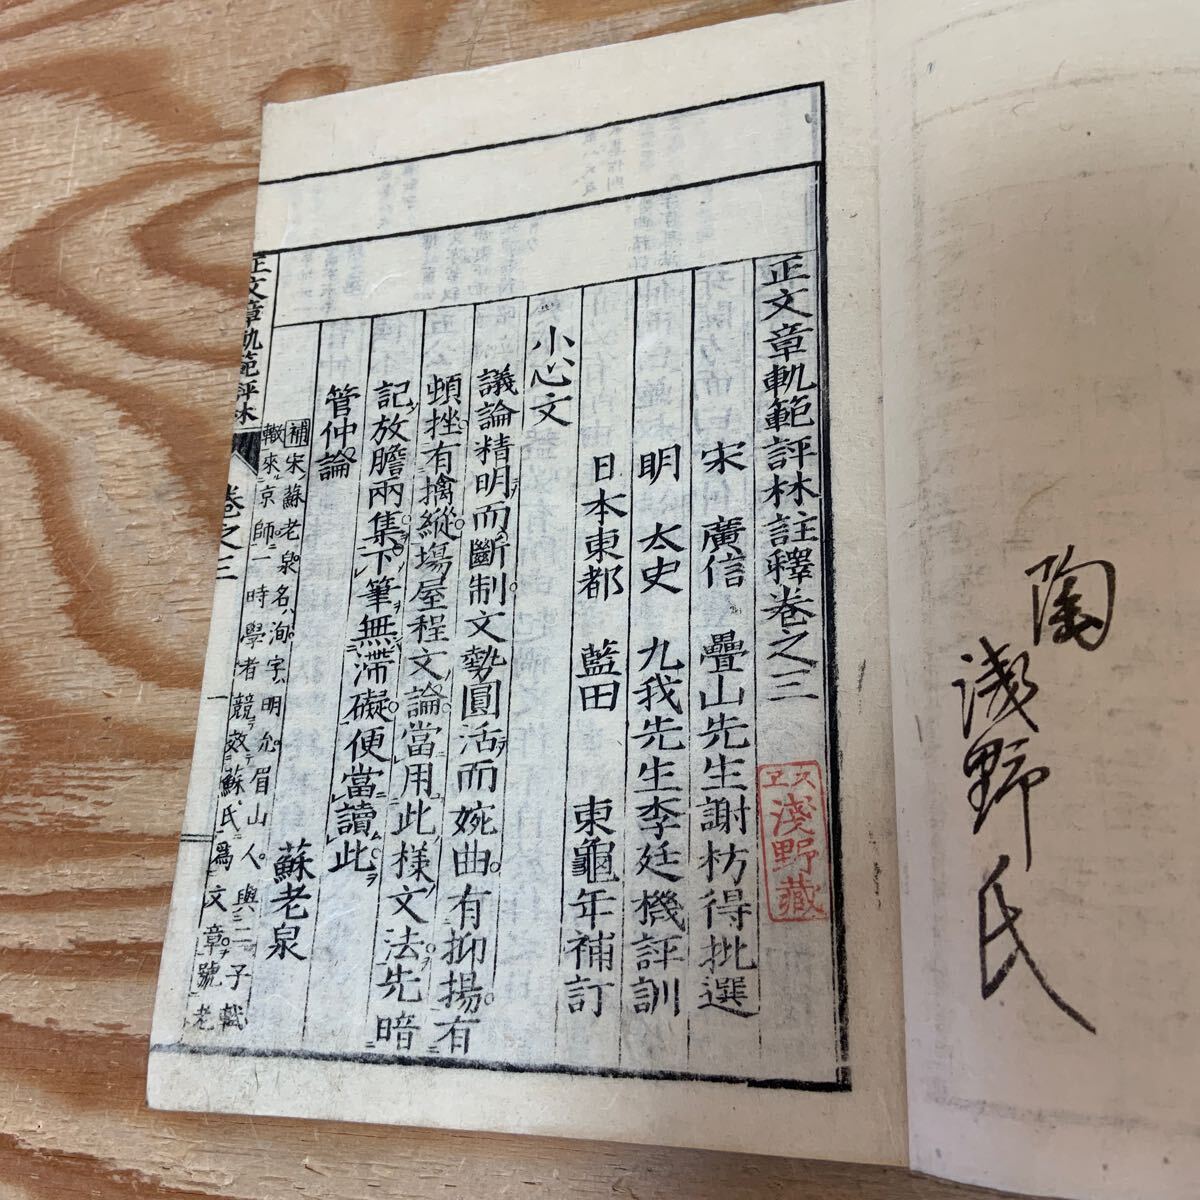 陶
浅野氏
正文章軌範評林註釋卷之三
ヱス
淺野藏
宋 廣信 疊山先生謝枋得批選
明 太史 九我先生李廷機評訓
日本東都 藍田 東龜年補訂
小心文
議論精明而斷制文勢圓活而婉曲有抑揚有
頓挫有擒縱塲屋程文論當用此樣文法先暗
記放膽兩集下筆無滯礙便當讀此
管仲論 蘇老泉
補宋蘇老泉名洵字明允眉山人與二子軾
轍來京師一時學者競效蘇氏爲文章號老
正文章軌範評林 卷之三 一